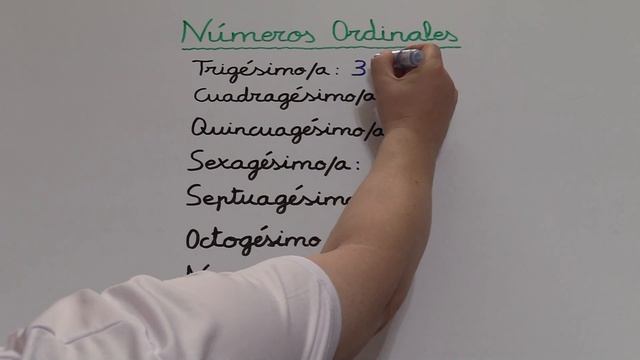 Números Ordinales
Trigésimo/a: 3
Cuadragésimo/a
Quincuagésimo/a
Sexagésimo/a:
Septuagésimo
Octogésimo